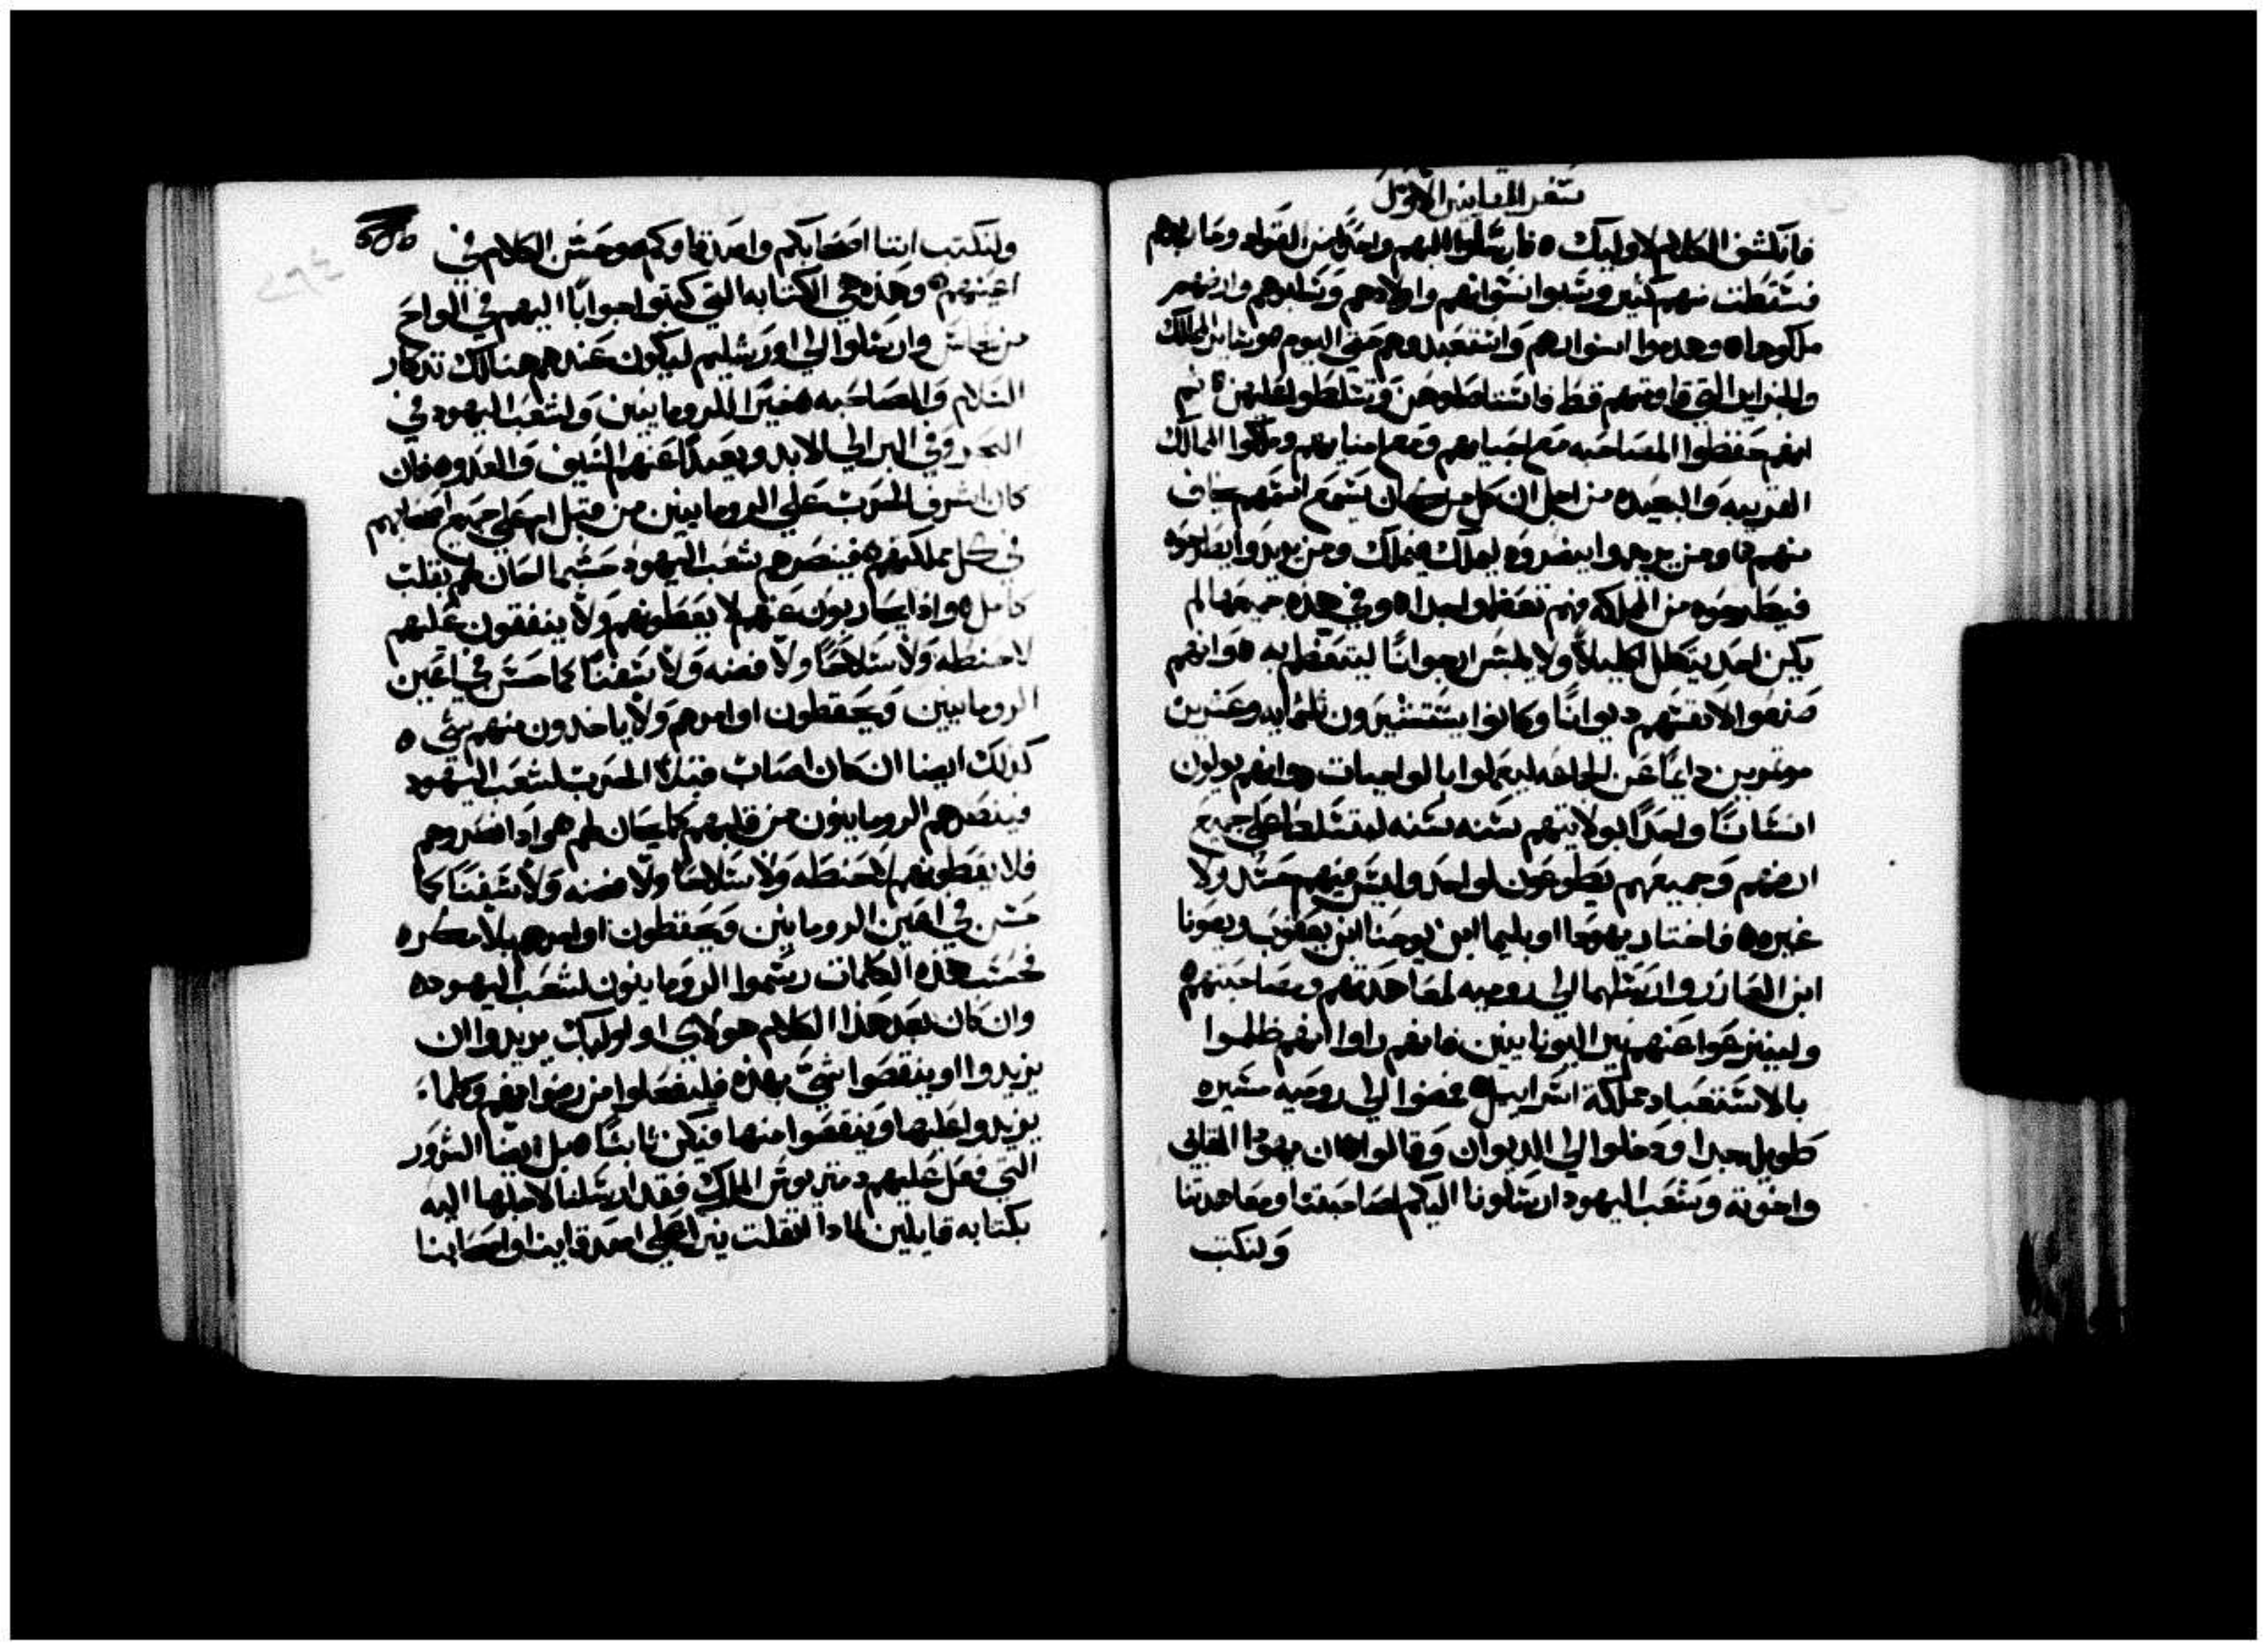 سفر المقابيين الاول
فانكشف الكلام لاوليك ه فارسلوا اليهم واحدًا من القواد وحاربوهم
فسقطت منهم كثير وسبوا نسوانهم واولادهم وسلبوهم وارضهم
ملكوها ه وهدموا اسوارهم واستعبدوهم حتى اليوم ه وساير الممالك
والجزاير التي قاومتهم قط فاستاصلوهن وتسلطوا عليهن ه ثم
انهم حفظوا المصاحبه مع احبايهم ومع امنايهم وملكوا الممالك
القريبه والبعيده من اجل ان كل من كان يسمع اسمهم يخاف
منهم ه ومن يريدوا ينصروه ليملك فيملك ومن يريدوا يطردوه
فيطردوه من المملكه فهم تعظموا جدا ه وفي هذه جميعها لم
يكن احد يتكلل اكليلاً ولا يلبس ارجوانًا ليتعظم به ه وانهم
صنعوا لانفسهم ديوانًا وكانوا يستشيرون ثلثمايه وعشرين
موتمرين دايمًا عن الجماعه ليعملوا بالواجبات ه وانهم يولون
انسانًا واحدًا بولايتهم سنه سنه ليتسلط على جميع
ارضهم وجميعهم يطوعون لواحد وليس فيهم حسد ولا
غيره ه فاختار يهودا اوبليما ابن يوحنا ابن يعقوب ويصونا
ابن العازر وارسلهما الى روميه لمعاهدتهم ومصاحبتهم ه
ولينزعوا عنهم نير اليونانيين فانهم راوا انهم ظلموا
بالاستعباد مملكة اسراييل ه فمضوا الى روميه مسيره
طويل جدا ودخلوا الى الديوان وقالوا ه ان يهودا المقابي
واخوته وشعب اليهود ارسلونا اليكم لمصاحبتنا ومعاهدتنا
ولنكتب
ولنكتب اننا اصحابكم واصدقاوكم ه وحسن الكلام في
اعينهم ه وهذه هي الكتابه التي كتبوا جوابًا اليهم في الواح
من نحاس وارسلوا الى اورشليم ليكون عندهم هنالك تذكار
السلام والمصاحبه ه خيرًا للرومانيين ولشعب اليهود في
البحر وفي البر الى الابد وبعيدًا عنهم السيف والعدو ه فان
كان اشرف الحرب على الرومانيين من قبل او على جميع اصحابهم
في كل مملكتهم ه فينصرهم شعب اليهود حسبما الحان لهم بقلب
كامل ه واذا يحاربون عنهم لا يعطونهم ولا ينفقون عليهم
لا حنطه ولا سلاحًا ولا فضه ولا سفنًا كما حسن في اعين
الرومانيين ويحفظون اوامرهم ولا ياخدون منهم شي ه
كذلك ايضا ان كان اصاب قبلاً الحرب لشعب اليهود
فينصرهم الرومانيون من قلبهم كما يحان لهم ه واذا نصروهم
فلا يعطونهم لا حنطه ولا سلاحًا ولا فضه ولا سفنًا كما
حسن في اعين الرومانيين ويحفظون اوامرهم بلا مكر ه
فحسب هذه الكلمات رسموا الرومانيون لشعب اليهود ه
وان كان بعد هذا الكلام هولاي او اوليك يريدوا ان
يزيدوا او ينقصوا شيً بهذه فليفعلوا من رضوانهم وكلما
يزيدوا عليها او ينقصوا منها فيكن ثابتًا ه بل ايضا الشرور
التي فعل عليهم دمتريوس الملك فقد ارسلنا لاجلها اليه
بكتابه قايلين لماذا اثقلت نيرك على اصدقاينا واصحابنا